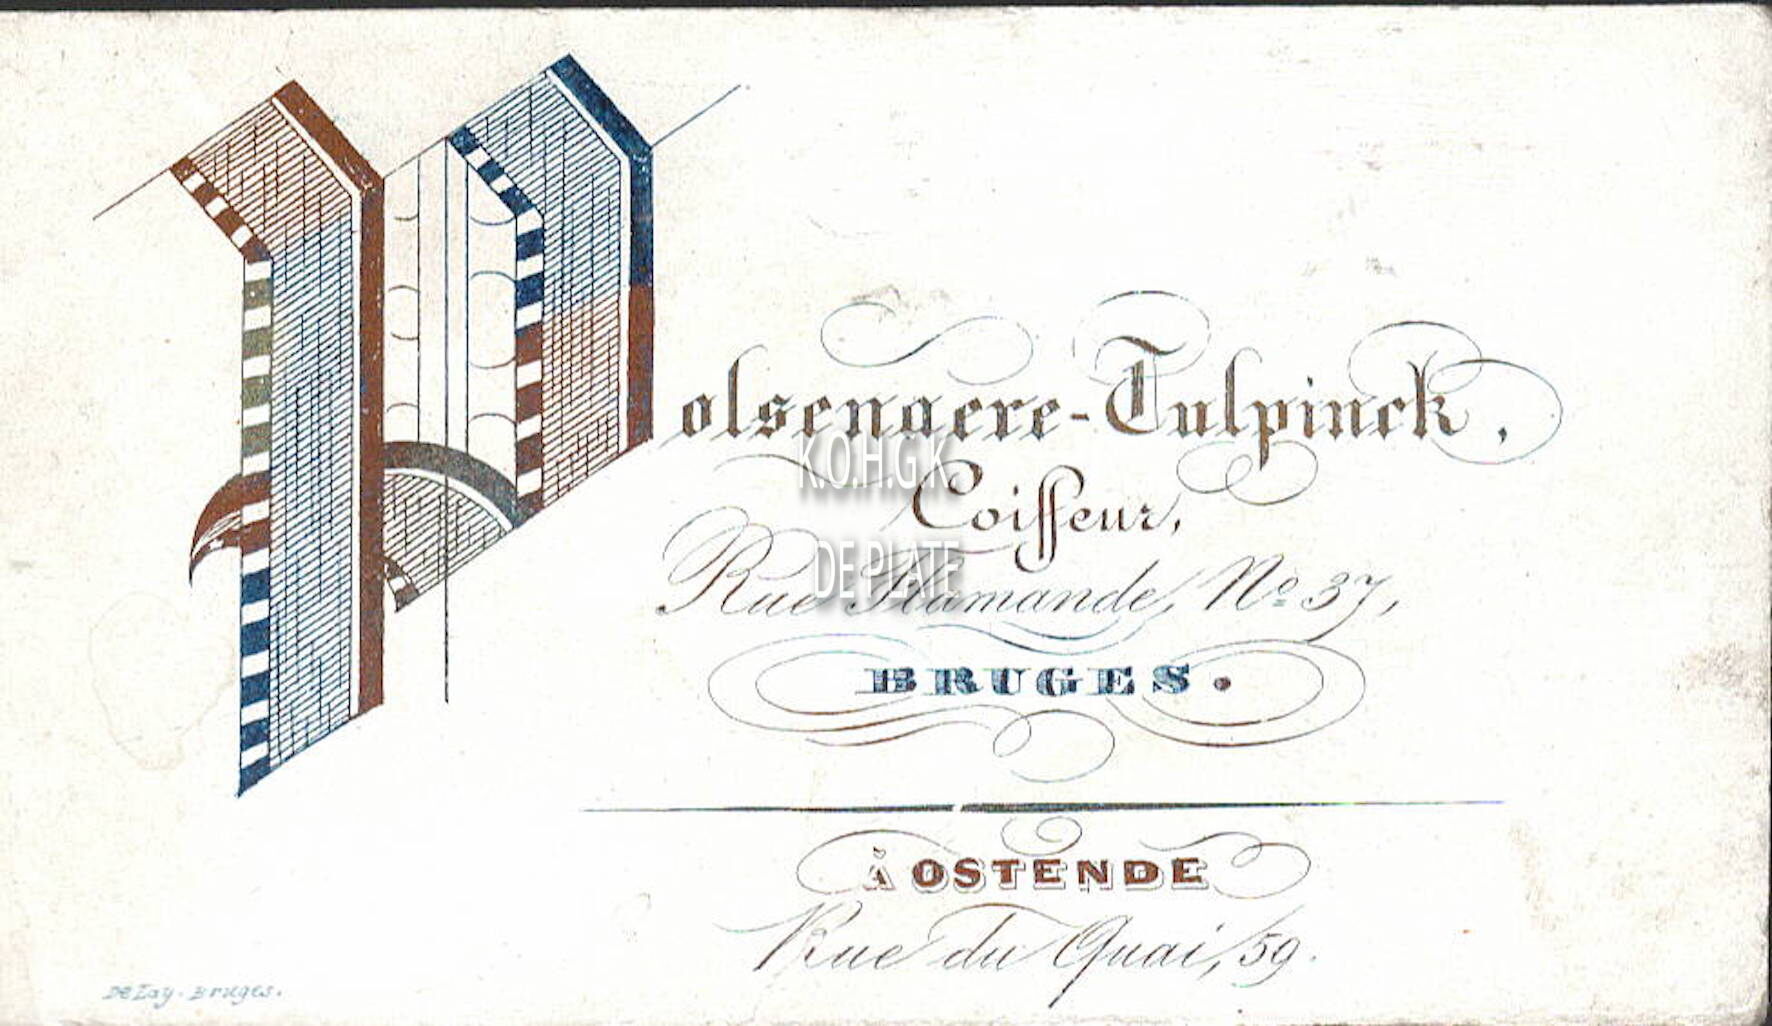 Polsenaere-Tulpinck,
Coiffeur,
Rue Flamande, Nº 37,
BRUGES.
À OSTENDE
Rue du Quai, 59.
DeLay. Bruges.
K.O.H.G.K
DE PLATE